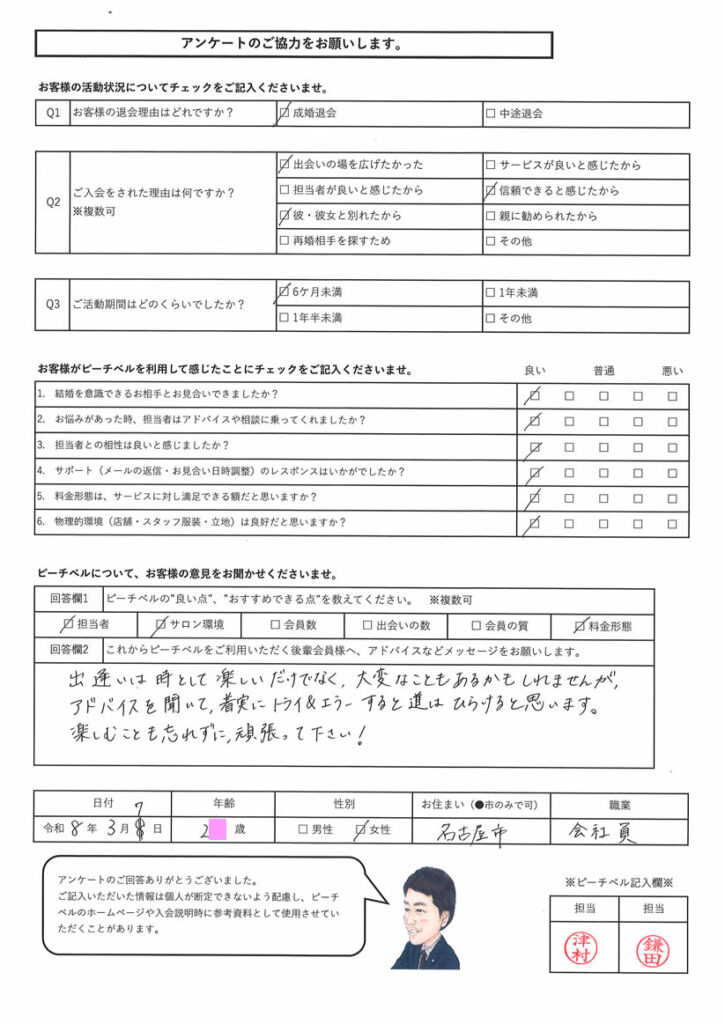 アンケートのご協力をお願いします。
お客様の活動状況についてチェックをご記入くださいませ。
Q1 お客様の退会理由はどれですか？ ☑成婚退会 □中途退会
Q2 ご入会をされた理由は何ですか？ ※複数可
☑出会いの場を広げたかった □サービスが良いと感じたから
□担当者が良いと感じたから ☑信頼できると感じたから
☑彼・彼女と別れたから □親に勧められたから
□再婚相手を探すため □その他
Q3 ご活動期間はどのくらいでしたか？
☑6ケ月未満 □1年未満
□1年半未満 □その他
お客様がピーチベルを利用して感じたことにチェックをご記入くださいませ。 良い 普通 悪い
1. 結婚を意識できるお相手とお見合いできましたか？ ☑ □ □ □ □
2. お悩みがあった時、担当者はアドバイスや相談に乗ってくれましたか？ ☑ □ □ □ □
3. 担当者との相性は良いと感じましたか？ ☑ □ □ □ □
4. サポート（メールの返信・お見合い日時調整）のレスポンスはいかがでしたか？ ☑ □ □ □ □
5. 料金形態は、サービスに対し満足できる額だと思いますか？ ☑ □ □ □ □
6. 物理的環境（店舗・スタッフ服装・立地）は良好だと思いますか？ ☑ □ □ □ □
ピーチベルについて、お客様の意見をお聞かせくださいませ。
回答欄1 ピーチベルの"良い点"、"おすすめできる点"を教えてください。 ※複数可
☑担当者 ☑サロン環境 □会員数 □出会いの数 □会員の質 ☑料金形態
回答欄2 これからピーチベルをご利用いただく後輩会員様へ、アドバイスなどメッセージをお願いします。
出逢いは時として楽しいだけでなく、大変なこともあるかもしれませんが、
アドバイスを聞いて、着実にトライ&エラーすると道はひらけると思います。
楽しむことも忘れずに、頑張って下さい！
日付 年齢 性別 お住まい（●市のみで可） 職業
令和8年3月7日 2 歳 □男性 ☑女性 名古屋市 会社員
アンケートのご回答ありがとうございました。
ご記入いただいた情報は個人が断定できないよう配慮し、ピーチ
ベルのホームページや入会説明時に参考資料として使用させてい
ただくことがあります。
※ピーチベル記入欄※
担当 担当
津村 鎌田